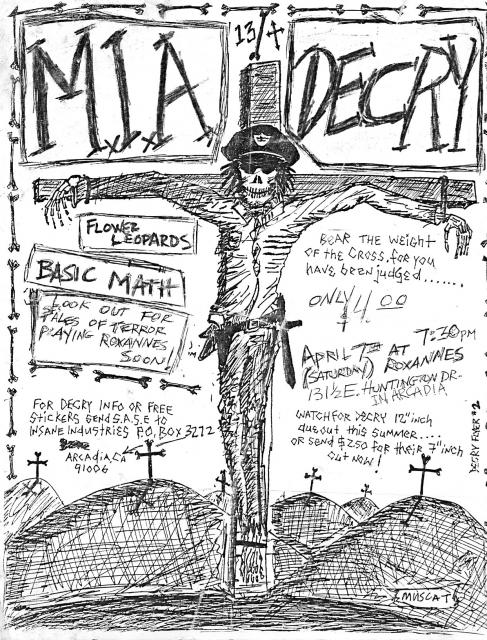 13/4
M.I.A
DECRY
FLOWER
LEOPARDS
BASIC MATH
LOOK OUT FOR
TALES OF TERROR
PLAYING ROXANNES
SOON!
BEAR THE WEIGHT
OF THE CROSS. for you
have been judged.......
ONLY 4.00
7:30PM
APRIL 7TH AT
(SATURDAY) ROXANNES
131½ E. HUNTINGTON DR.
IN ARCADIA
FOR DECRY INFO OR FREE
Stickers send S.A.S.E to
INSANE INDUSTRIES P.O. BOX 3272
ARCADIA, CA
91006
WATCH FOR DECRY 12" inch
due out this summer....
or send $2.50 for their 7" inch
out now!
DECRY FLIER #2
MUSCAT